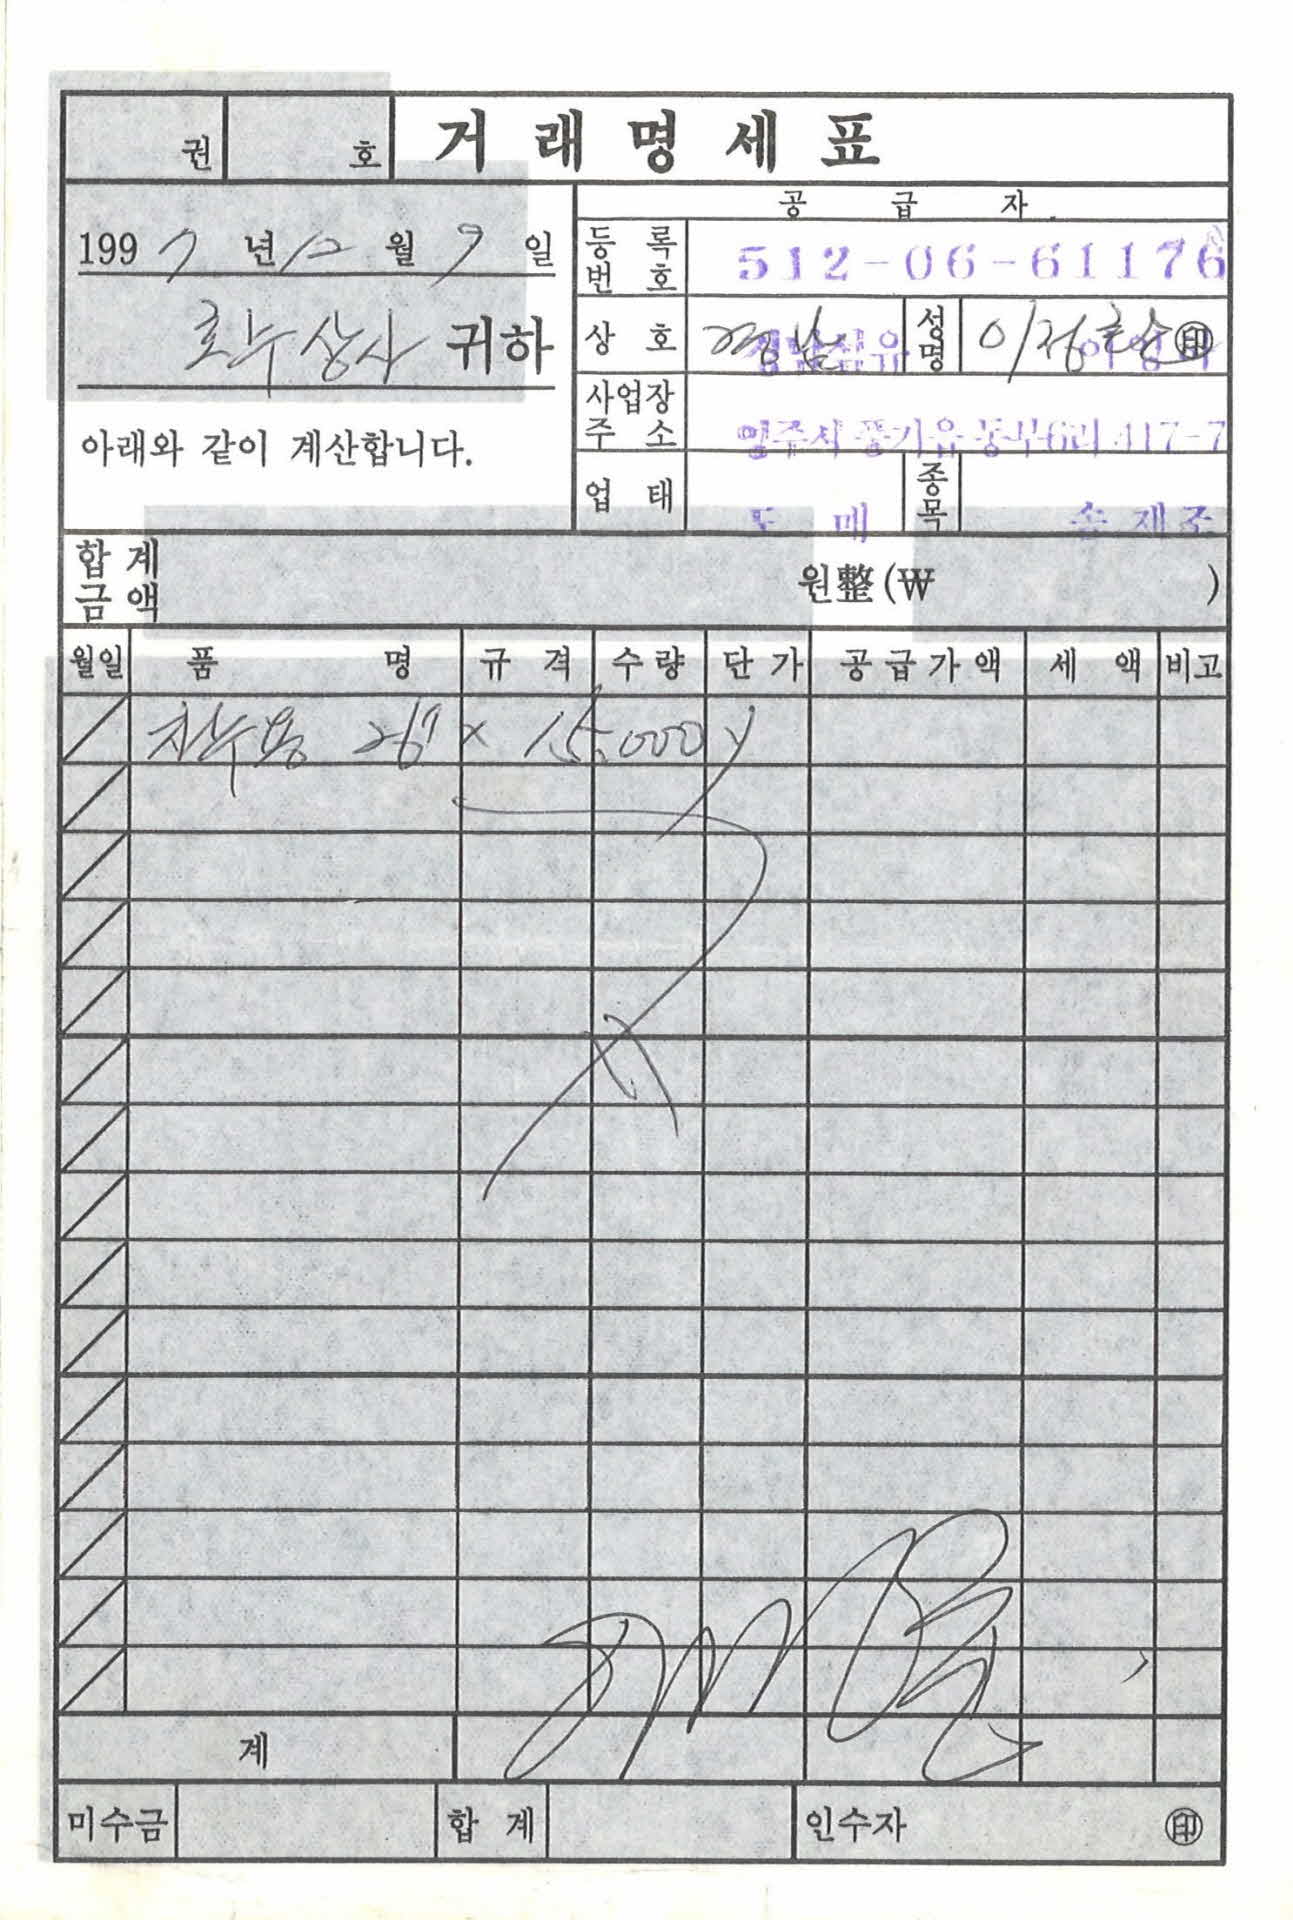 권 호 거래명세표
공급자
1997년 12월 9일
등록번호 512-06-61176
귀하
상호 성명 ㊞
사업장주소 영주시 풍기읍 동부6리 417-7
아래와 같이 계산합니다.
업태 도매 종목
합계금액 원整(₩ )
월일 품명 규격 수량 단가 공급가액 세액 비고
x 15,000
계
미수금 합계 인수자 ㊞